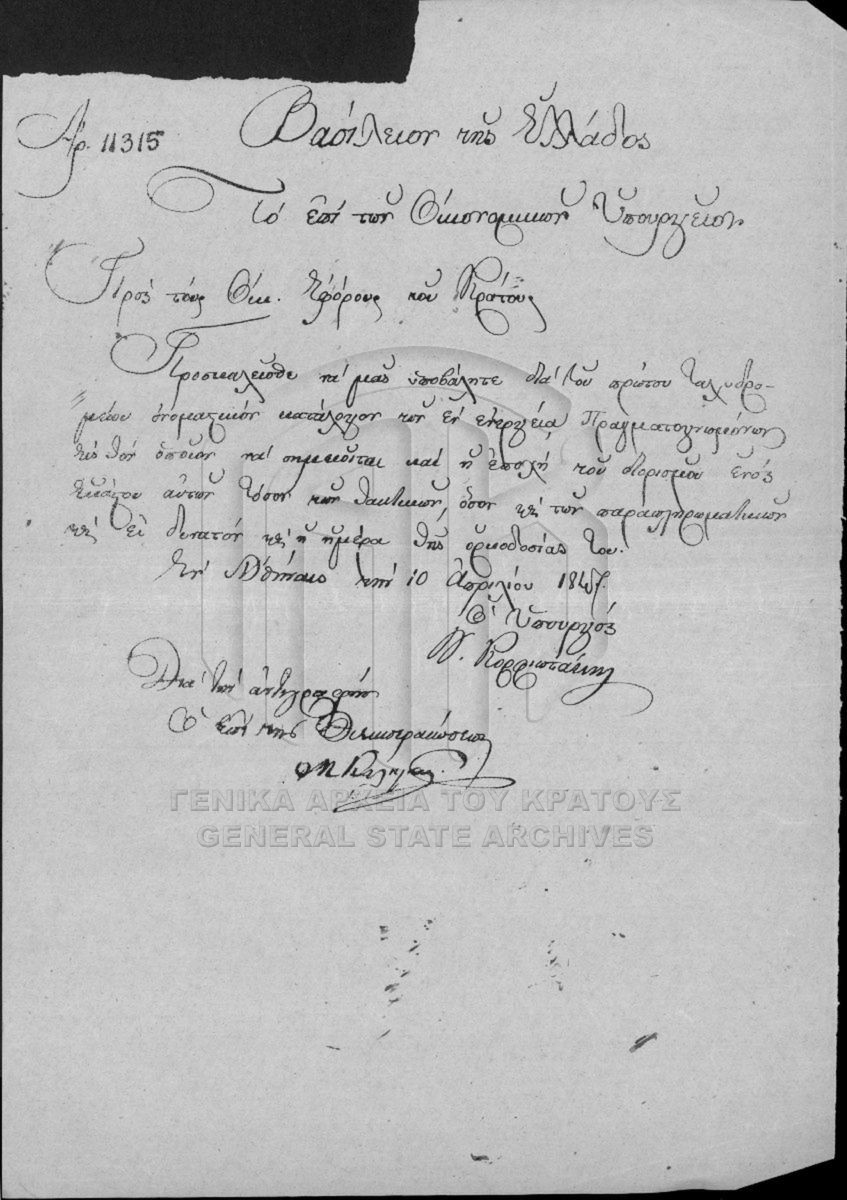 Αρ. 11315
Βασίλειον τῆς Ἑλλάδος
Τὸ ἐπὶ τῶν Οἰκονομικῶν Ὑπουργεῖον
Πρὸς τοὺς Οἰκ. Ἐφόρους τοῦ Κράτους
Προσκαλεῖσθε νὰ μᾶς ὑποβάλητε διὰ τοῦ πρώτου ταχυδρο-
μείου ὀνομαστικὸν κατάλογον τῶν ἐν ἐνεργείᾳ Πραγματογνωμόνων
εἰς τὸν ὁποῖον νὰ σημειοῦται καὶ ἡ ἐποχὴ τοῦ διορισμοῦ ἑνὸς
ἑκάστου αὐτῶν τόσον τῶν τακτικῶν, ὅσον καὶ τῶν παραπληρωματικῶν
καὶ εἰ δυνατὸν καὶ ἡ ἡμέρα τῆς ὁρκοδοσίας του.
Ἐν Ἀθήναις τὴν 10 Ἀπριλίου 1847.
Ὁ Ὑπουργὸς
Κορφιωτάκης
Διὰ τὴν ἀντιγραφὴν
Ὁ ἐπὶ τῆς Διεκπεραιώσεως
ΓΕΝΙΚΑ ΑΡΧΕΙΑ ΤΟΥ ΚΡΑΤΟΥΣ
GENERAL STATE ARCHIVES